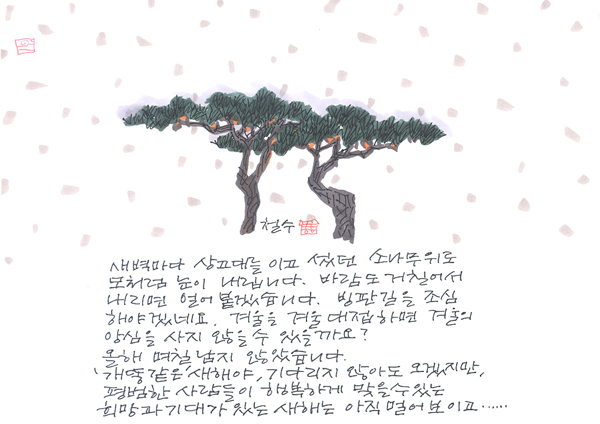 철수
새벽마다 상고대를 이고 섰던 소나무위로
모처럼 눈이 내립니다. 바람도 거칠어서
내리면 얼어 붙겠습니다. 빙판길을 조심
해야겠네요. 겨울을 겨울 대접하면 겨울의
앙심을 사지 않을 수 있을까요?
올해 며칠 남지 않았습니다.
'개똥같은 새해야, 기다리지 않아도 오겠지만,
평범한 사람들이 행복하게 맞을수있는
희망과 기대가 있는 새해는 아직 멀어 보이고……